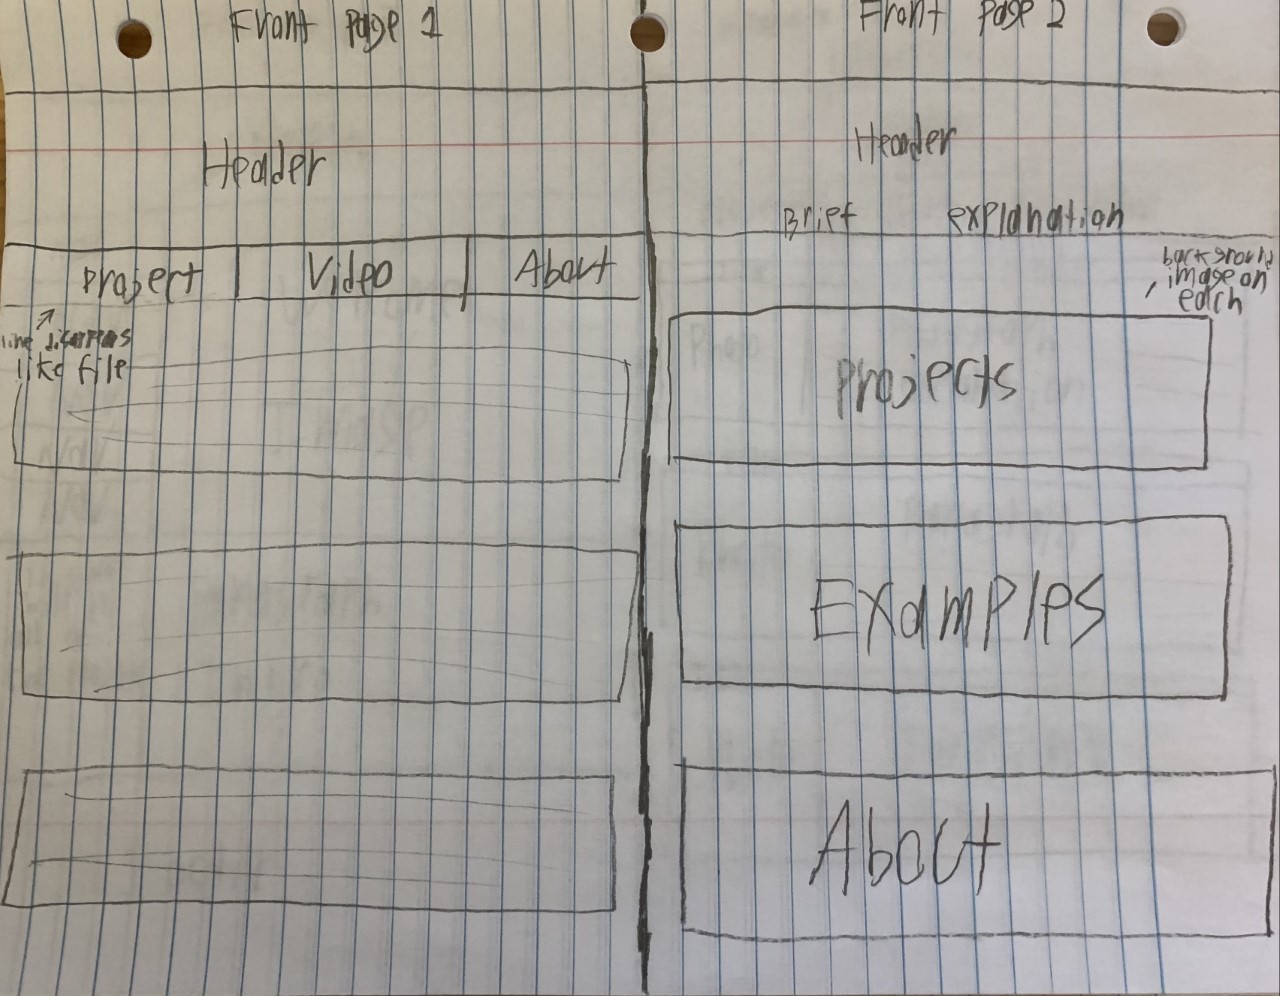 Front page 1
Header
Project
Video
About
line disappears
like file
Front page 2
Header
Brief explanation
background
image on
each
Projects
Examples
About